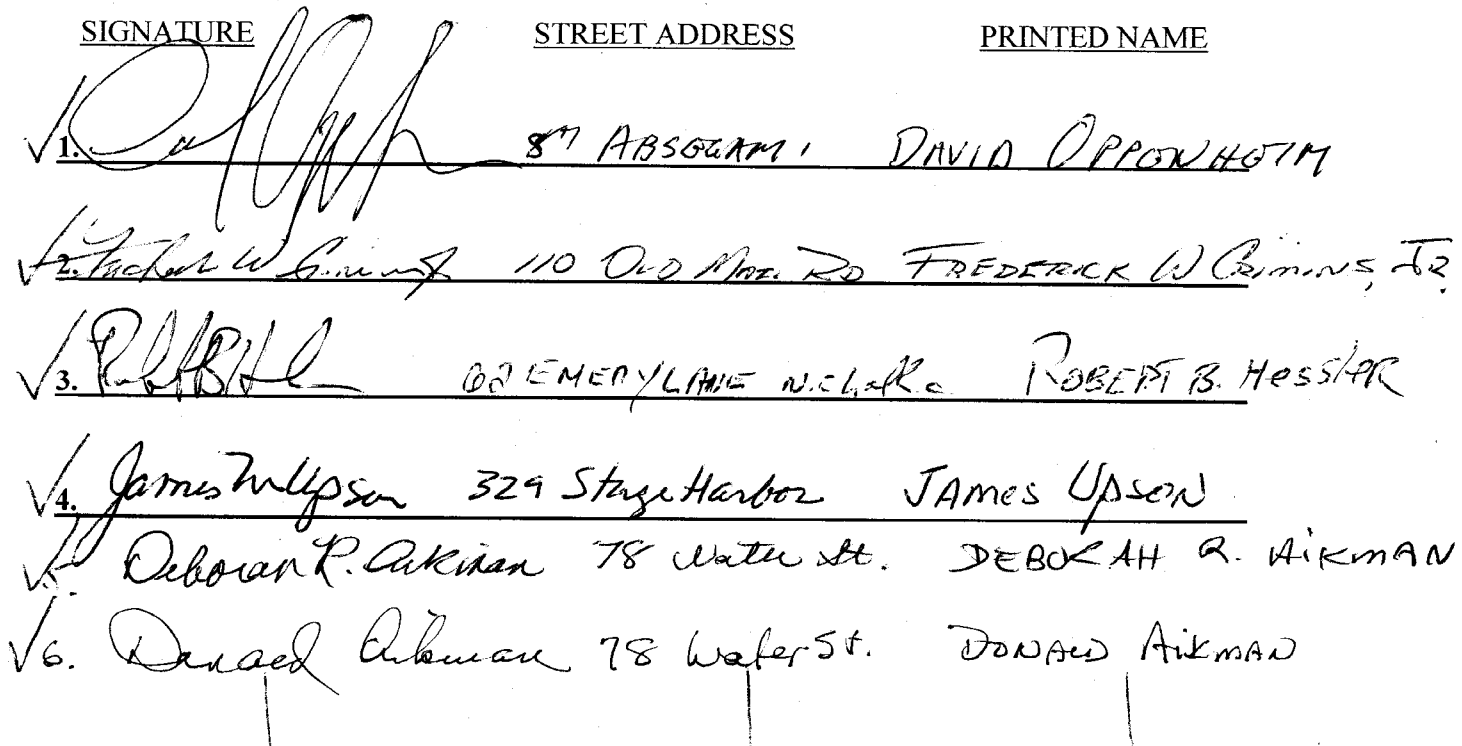 SIGNATURE STREET ADDRESS PRINTED NAME
1. ABSEGAMI DAVID OPPENHEIM
2. 110 OLD MAIL RD FREDERICK W CRIMINS, JR.
3. 62 EMERY LANE ROBERT B. HESSLER
4. James M Upson 329 Stage Harbor JAMES UPSON
5. Deborah R. Aikman 78 Water St. DEBORAH R. AIKMAN
6. Donald Aikman 78 Water St. DONALD AIKMAN